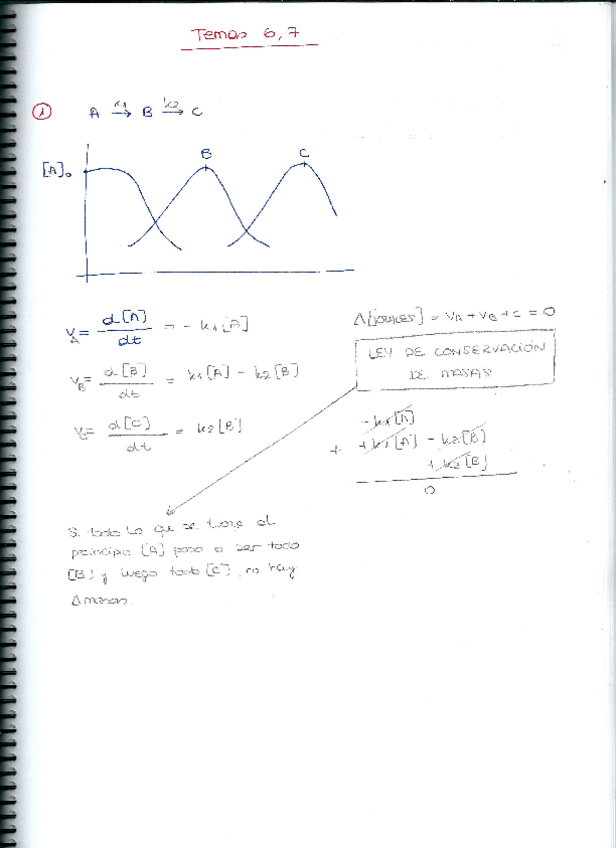 Temas 6,7
① A →k1 B →k2 C
[A]₀ B C
V_A = d[A]/dt = - k1[A]
V_B = d[B]/dt = k1[A] - k2[B]
V_C = d[C]/dt = k2[B]
= V_A + V_B + C = 0
LEY DE CONSERVACIÓN
DE MASAS
- k1[A]
+ + k1[A] - k2[B]
+ k2[B]
0
Si todo lo que se tiene al
principio [A] pasa a ser todo
[B] y luego todo [C], no hay
Δmasas.